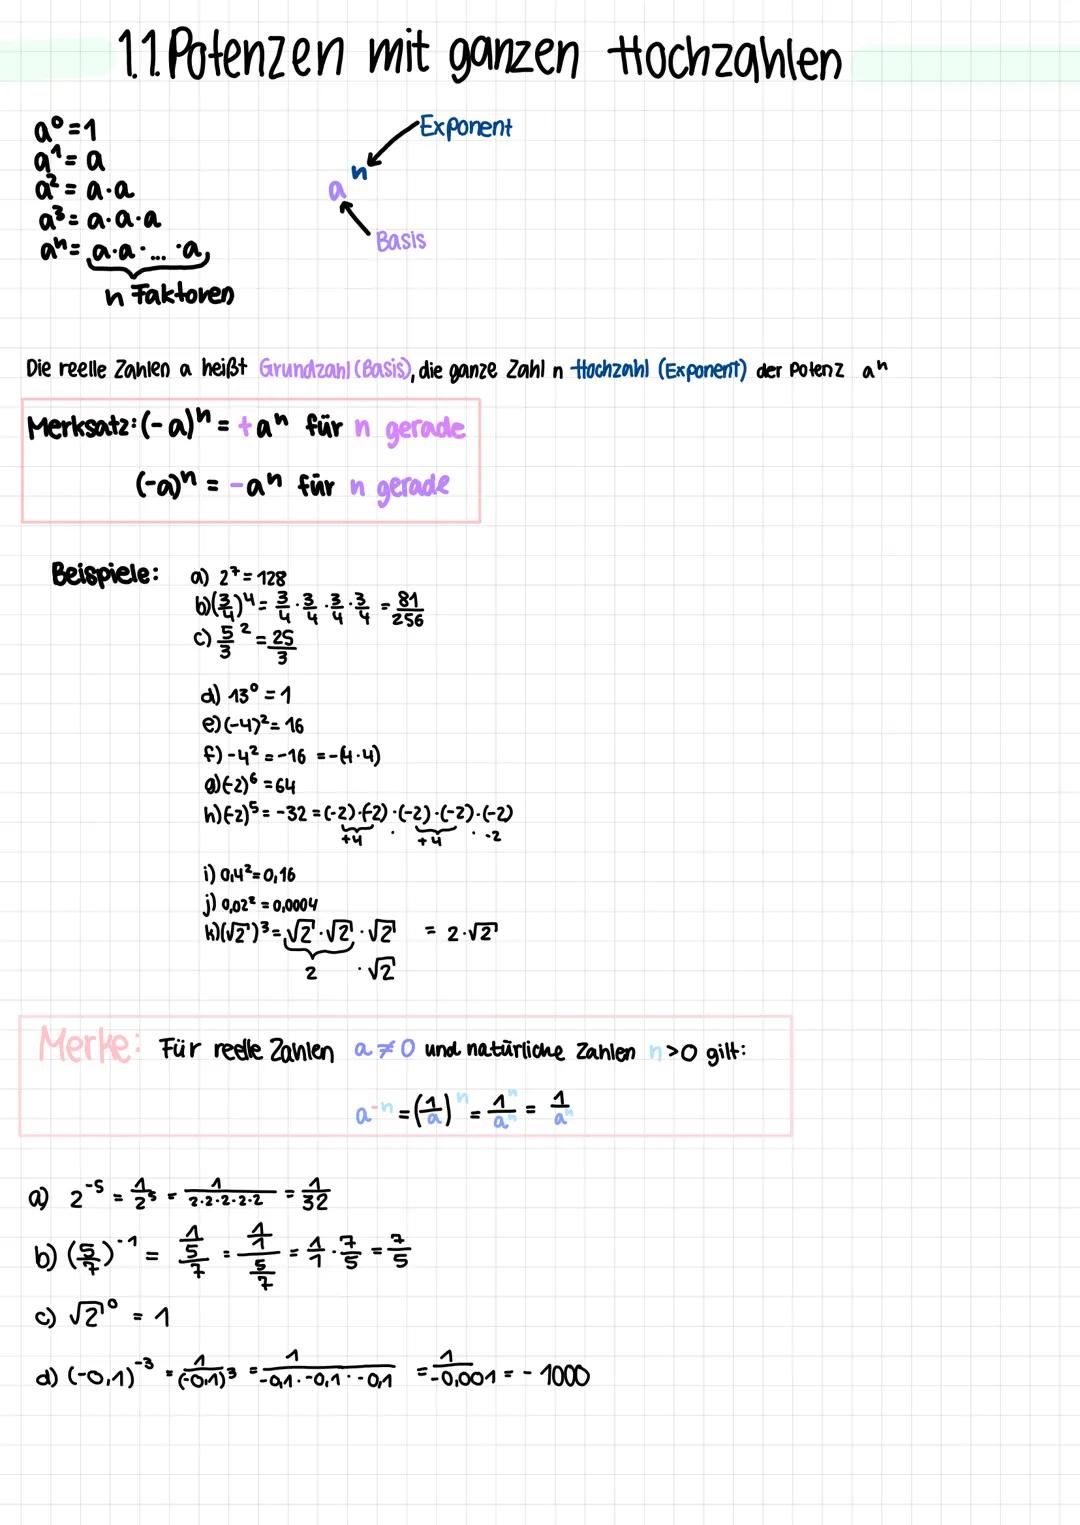 1.1. Potenzen mit ganzen Hochzahlen
a⁰ = 1
a¹ = a
a² = a·a
a³ = a·a·a
aⁿ = a·a·...·a
n Faktoren
Exponent
aⁿ
Basis
Die reelle Zahlen a heißt Grundzahl (Basis), die ganze Zahl n Hochzahl (Exponent) der Potenz aⁿ
Merksatz: (-a)ⁿ = +aⁿ für n gerade
(-a)ⁿ = -aⁿ für n gerade
Beispiele: a) 2⁷ = 128
b) (3/4)⁴ = 3/4 · 3/4 · 3/4 · 3/4 = 81/256
c) 5/3 ² = 25/3
d) 13⁰ = 1
e) (-4)² = 16
f) -4² = -16 = -(4·4)
g) (-2)⁶ = 64
h) (-2)⁵ = -32 = (-2)·(-2)·(-2)·(-2)·(-2)
+4 · +4 · -2
i) 0,4² = 0,16
j) 0,02² = 0,0004
k) (√2)³ = √2·√2·√2 = 2·√2
2 · √2
Merke: Für reelle Zahlen a ≠ 0 und natürliche Zahlen n > 0 gilt:
a⁻ⁿ = (1/a)ⁿ = 1ⁿ/aⁿ = 1/aⁿ
a) 2⁻⁵ = 1/2⁵ = 1/2·2·2·2·2 = 1/32
b) (5/7)⁻¹ = 1/5/7 = 1/1/5/7 = 1/1 · 7/5 = 7/5
c) √2⁰ = 1
d) (-0,1)⁻³ = 1/(-0,1)³ = 1/-0,1·-0,1·-0,1 = 1/-0,001 = -1000